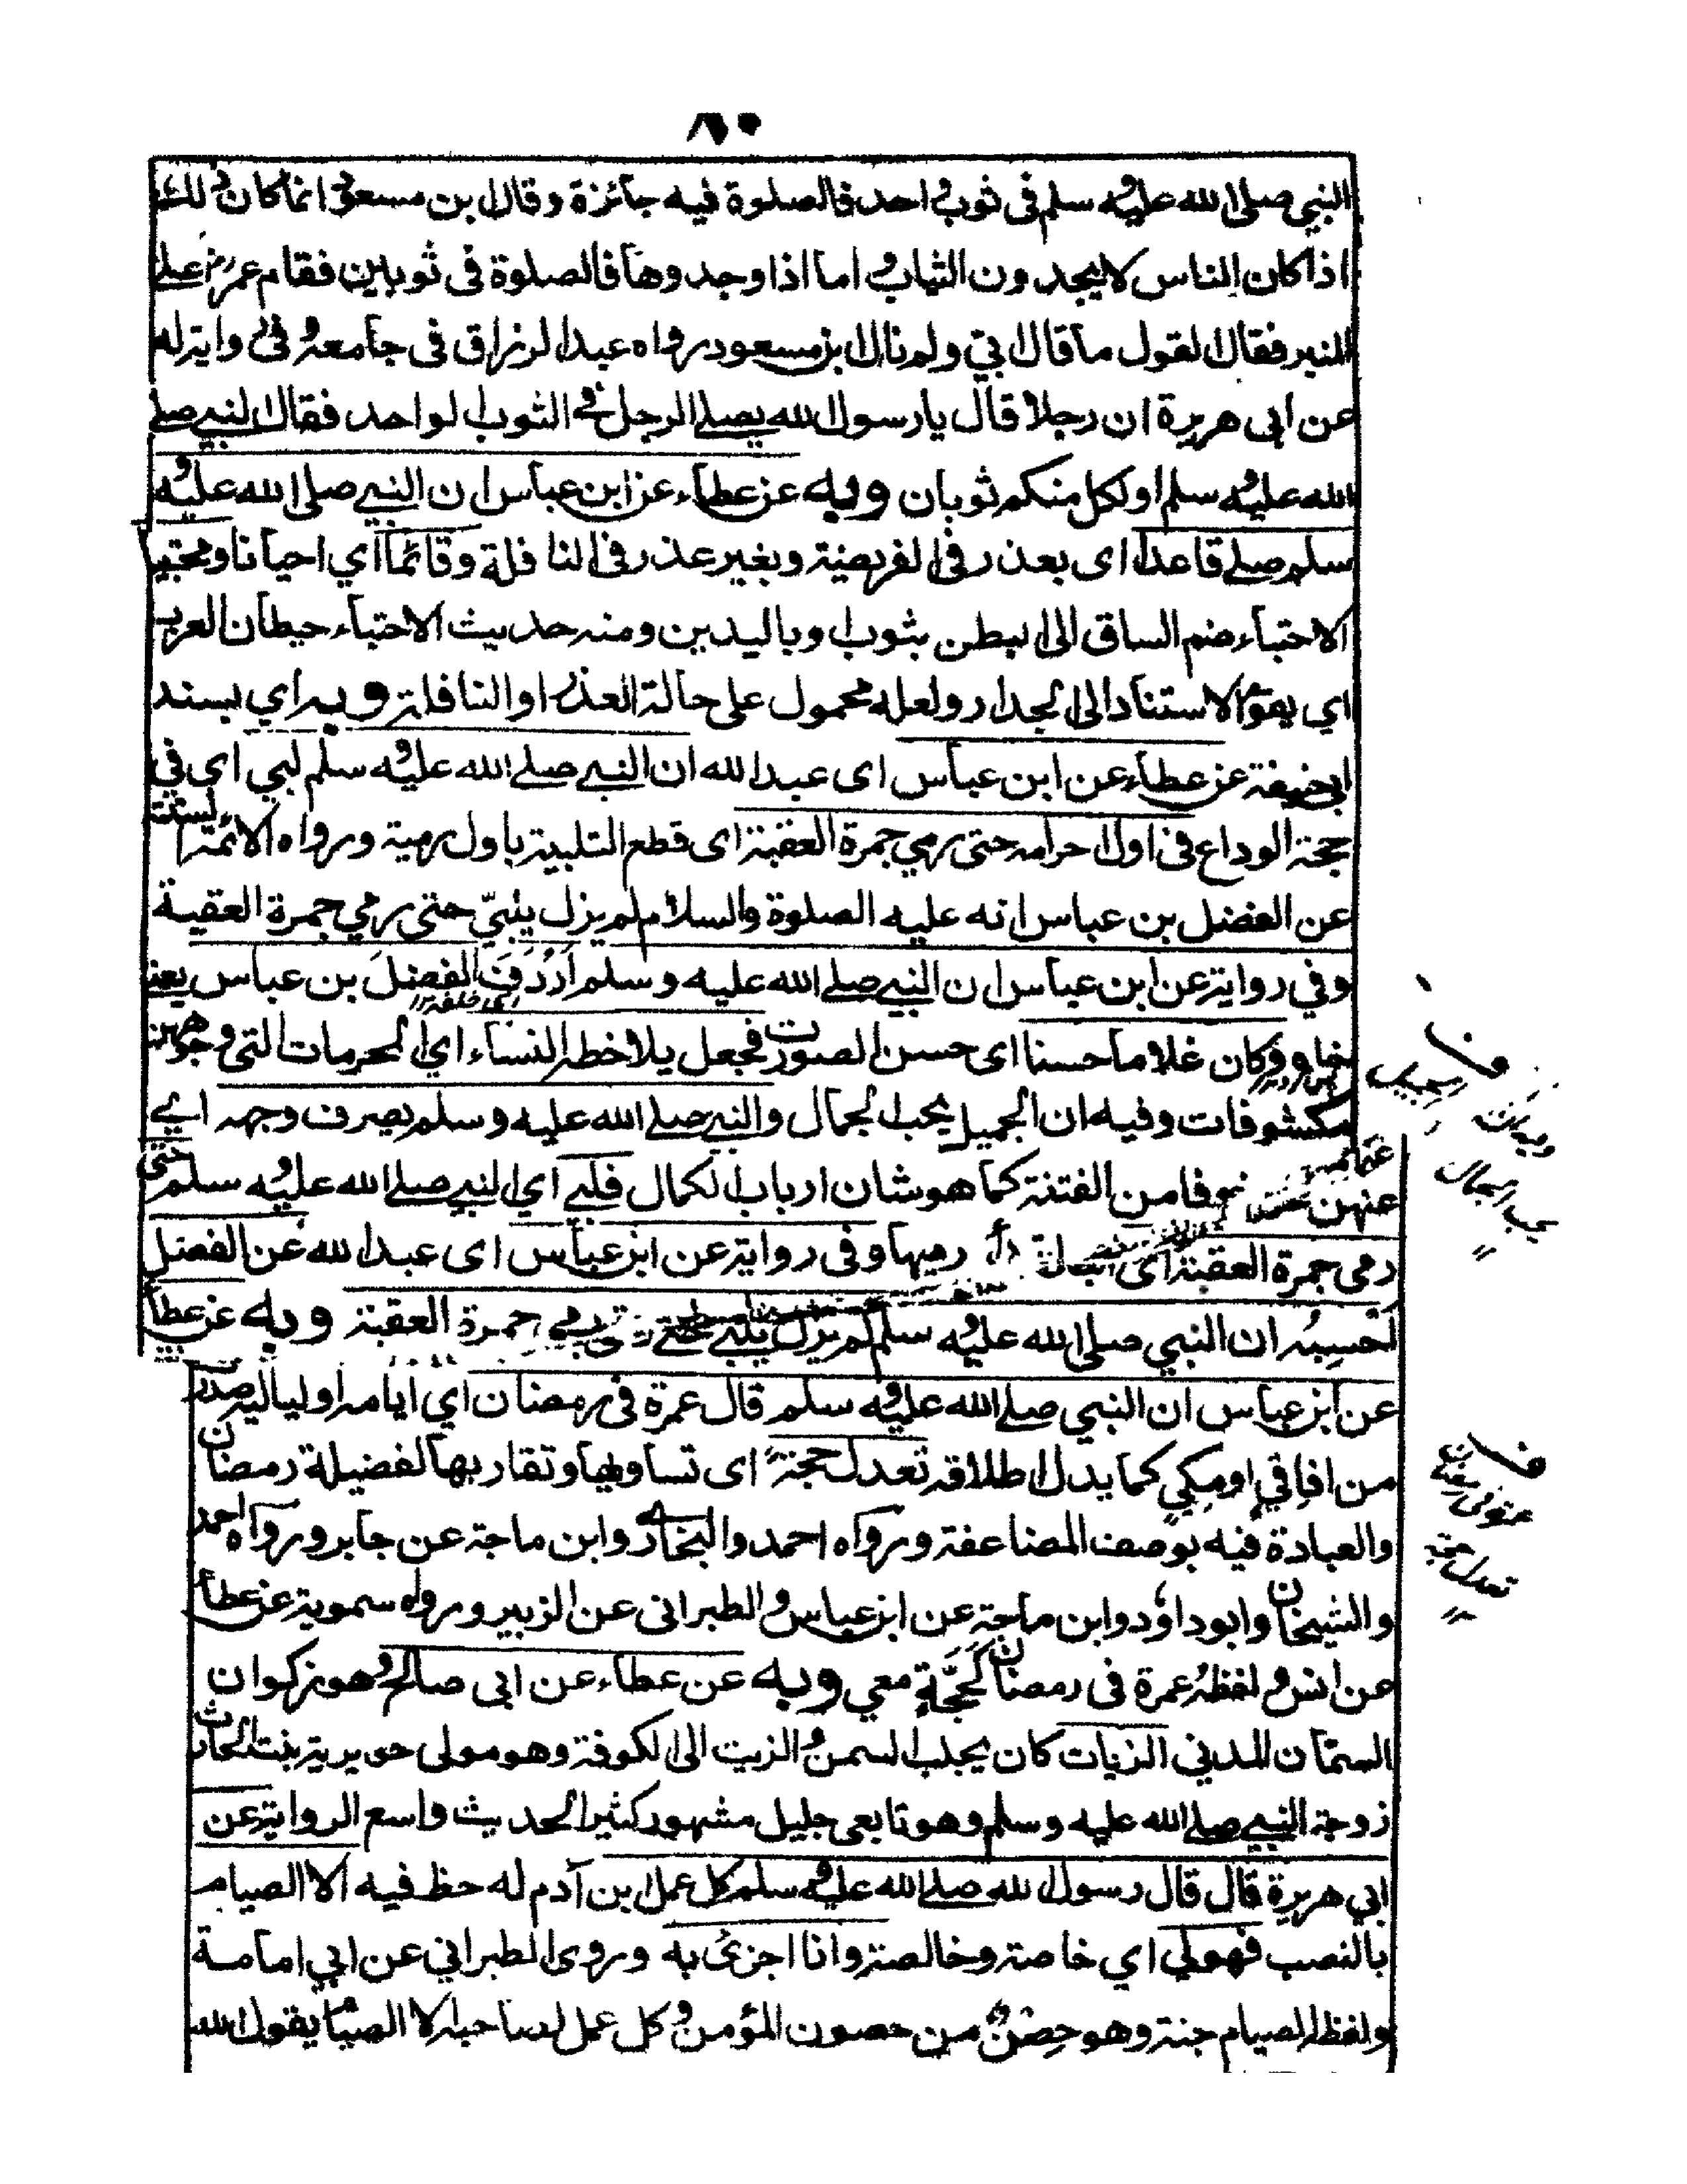 ٨٠
النبي صلى الله عليه وسلم في ثوب واحد فالصلوة فيه جائزة وقال بن مسعود انما كان ذلك
اذا كان الناس لا يجدون الثياب واما اذا وجدوها فالصلوة في ثوبين فقام عمر رض على
المنبر فقال القول ما قال ابي ولم نال ابن مسعود رواه عبد الرزاق في جامعه وفي رواية له
عن ابي هريرة ان رجلا قال يا رسول الله يصلي الرجل في الثوب الواحد فقال النبي صلى
الله عليه وسلم اولكل منكم ثوبان وبه عن عطاء عن ابن عباس ان النبي صلى الله عليه و
سلم صلى قاعدا اى بعذر في الفريضة وبغير عذر في النافلة وقائما اي احيانا ومحتبيا
الاحتباء ضم الساق الى البطن بثوب او باليدين ومنه حديث الاحتباء حيطان العرب
اي يقوم الاستناد الى الجدار ولعله محمول على حالة العذر او النافلة وبه اي بسند
ابي حنيفة عن عطاء عن ابن عباس اى عبد الله ان النبي صلى الله عليه وسلم لبي اى في
حجة الوداع في اول احرامه حتى رمي جمرة العقبة اى قطع التلبية باول رمية ورواه الائمة الستة
عن الفضل بن عباس انه عليه الصلوة والسلام لم يزل يلبي حتى رمي جمرة العقبة
وفي رواية عن ابن عباس ان النبي صلى الله عليه وسلم اردف الفضل بن عباس يعني
اى خلفه
وكان غلاما حسنا اى حسن الصورت فجعل يلاحظ النساء اي المحرمات التي وجوههن
مكشوفات وفيه ان الجميل يحب الجمال والنبي صلى الله عليه وسلم يصرف وجهه اي
عنهن خوفا من الفتنة كما هو شان ارباب الكمال فلبي اي النبي صلى الله عليه وسلم حتى
رمى جمرة العقبة اى رميها وفى رواية عن ابن عباس اى عبد الله عن الفضل
احسبه ان النبي صلى الله عليه وسلم لم يزل يلبي حتى رمي جمرة العقبة وبه عن عطاء
عن ابن عباس ان النبي صلى الله عليه وسلم قال عمرة في رمضان اي ايامه او لياليه صدر
من افاقي او مكي كما يدل اطلاقه تعدل حجة اى تساويها وتقاربها لفضيلة رمضان
والعبادة فيه بوصف المضاعفة ورواه احمد والبخارى وابن ماجة عن جابر ورواه احمد
والشيخان وابو داود وابن ماجة عن ابن عباس والطبرانى عن الزبير ورواه سموية عن عطاء
عن انس ولفظه عمرة فى رمضان كحجة معي وبه عن عطاء عن ابى صالح وهو زكوان
السمان المدني الزيات كان يجلب السمن والزيت الى الكوفة وهو مولى جويرية بنت الحارث
زوجة النبي صلى الله عليه وسلم وهو تابعى جليل مشهور كثير الحديث واسع الرواية عن
ابي هريرة قال قال رسول الله صلى الله عليه وسلم كل عمل ابن آدم له حظ فيه الا الصيام
بالنصب فهو لي اي خاصة وخالصة وانا اجزى به وروى الطبراني عن ابي امامة
ولفظ الصيام جنة وهو حصن من حصون المؤمن وكل عمل لصاحبه الا الصيام يقول الله
ف
وفيه ان الجميل
يحب الجمال
ف
عمرة فى رمضان
تعدل حجة